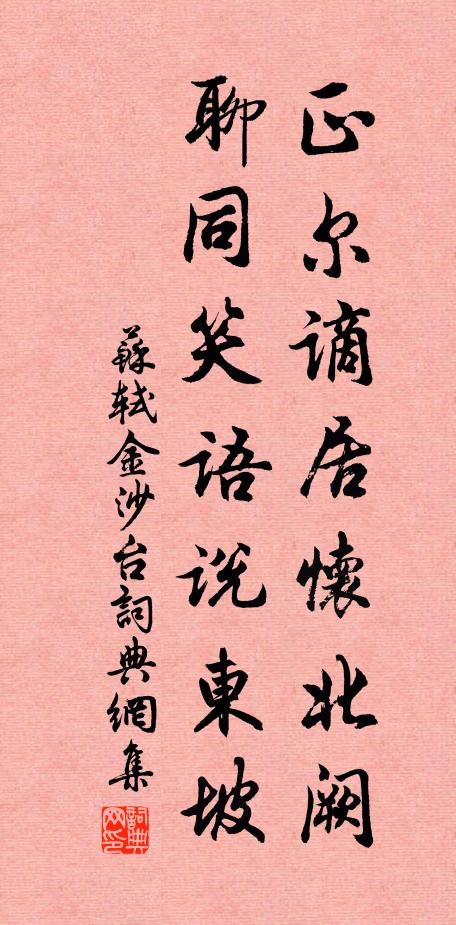 正尔谪居懷北阙
聊同笑语说東坡
蘇轼金沙台詞典網集
詞典网印